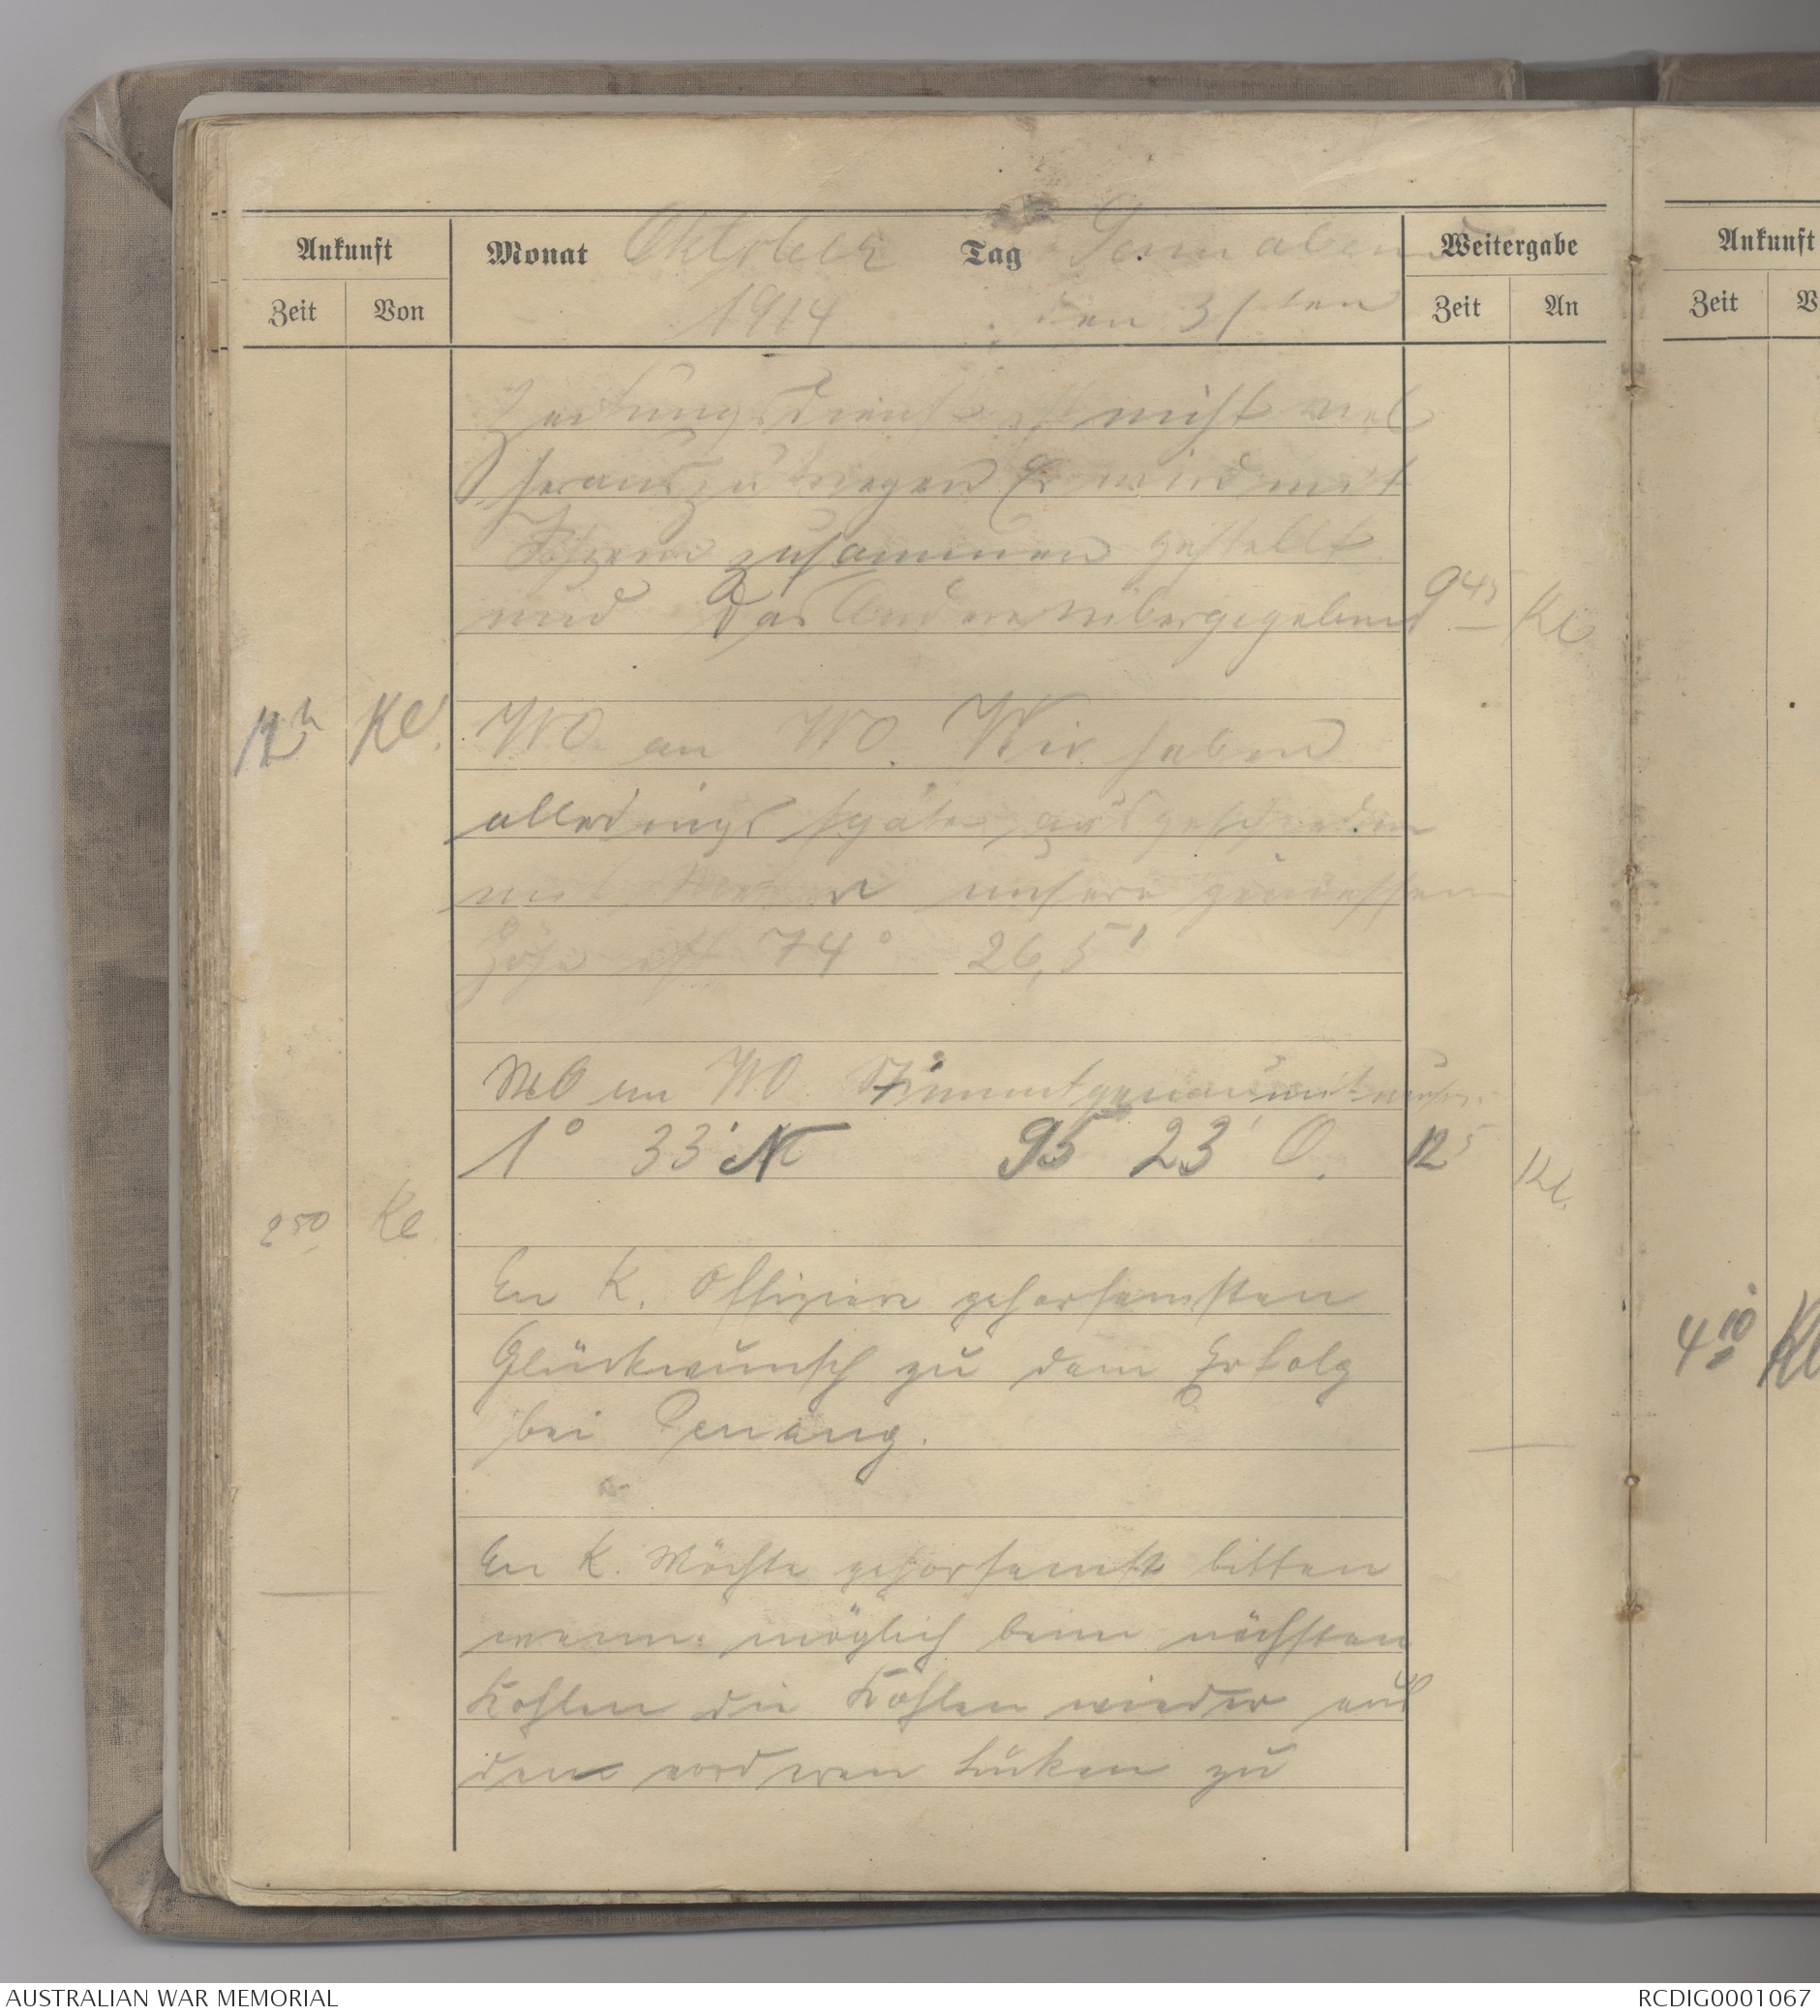 Ankunft
Monat Oktober Tag Sonnabend Weitergabe
Zeit Von 1914 den 31 ten Zeit An
Zeitungsdienst ist nicht viel
herauszukriegen Er wird mit
zusammen gestellt
und das Andere übergegeben 9 45 Kl
12 h Kl. WO an WO. Wir haben
allerdings später
mit unsere gemessene
Höhe ist 74° 26,5'
WO an WO. Stimmt genau mit
1° 33' N 95 23' O. 12 5 Kl.
2 50 Kl.
An K. Offiziere gehorsamsten
Glückwunsch zu dem Erfolg
bei Penang.
An K. Möchte gehorsamst bitten
wenn möglich beim nächsten
Kohlen die Kohlen wieder aus
den vorderen Luken zu
Ankunft
Zeit V
4 10 Kl
AUSTRALIAN WAR MEMORIAL RCDIG0001067